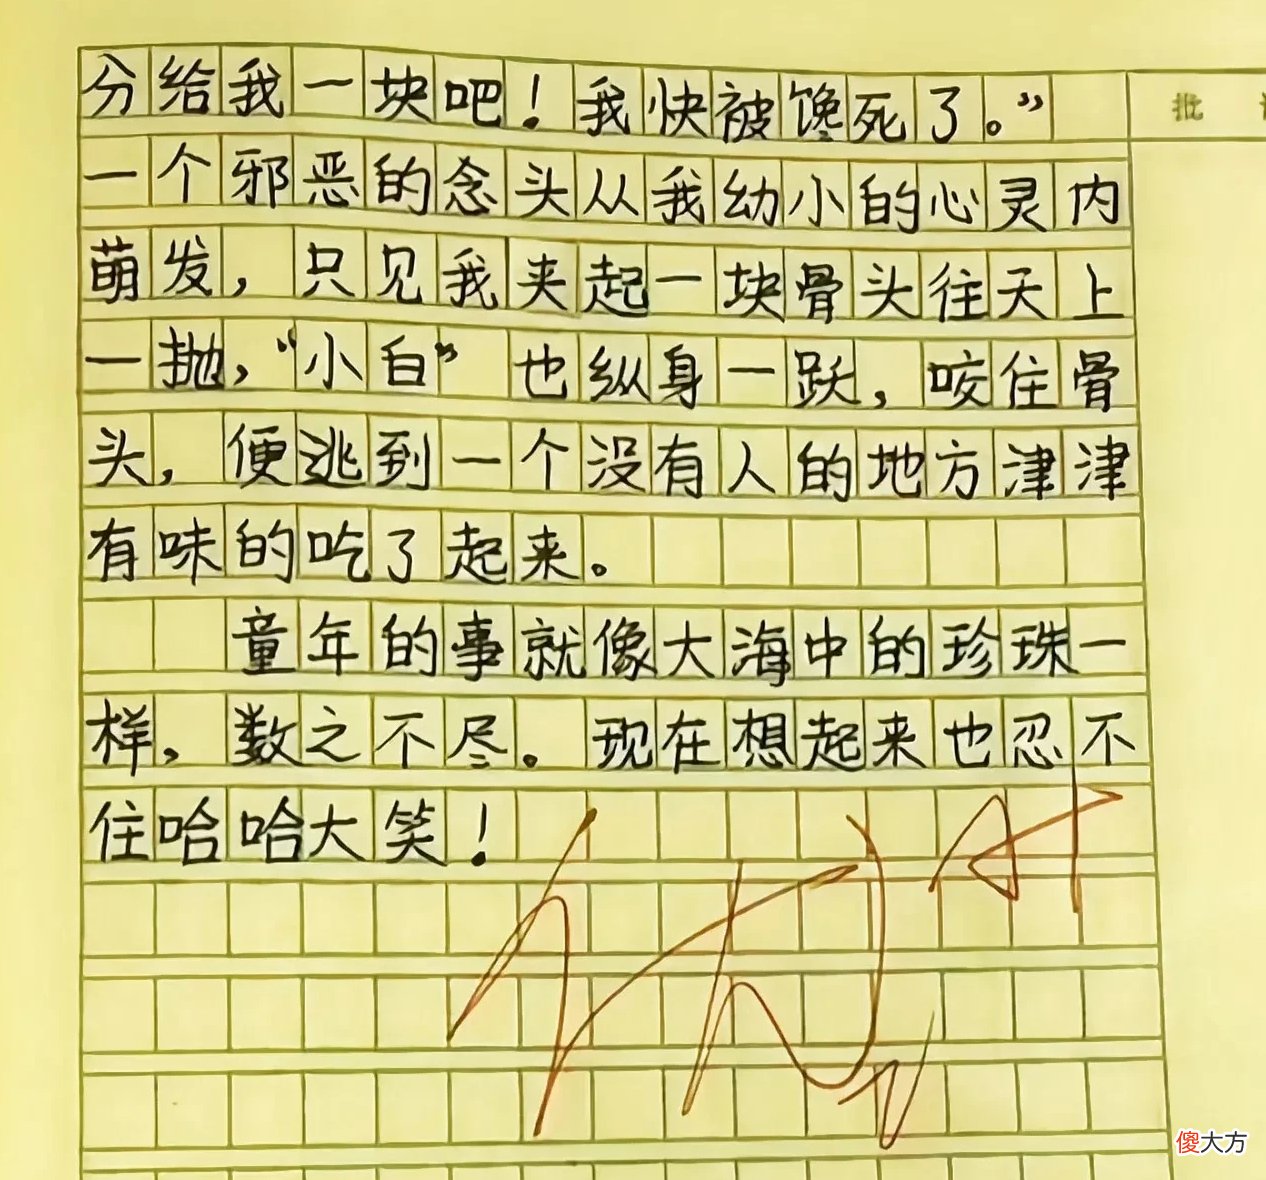 分给我一块吧！我快被馋死了。”
批
一个邪恶的念头从我幼小的心灵内
萌发，只见我夹起一块骨头往天上
一抛，“小白”也纵身一跃，咬住骨
头，便逃到一个没有人的地方津津
有味的吃了起来。
童年的事就像大海中的珍珠一
样，数之不尽。现在想起来也忍不
住哈哈大笑！
傻大方